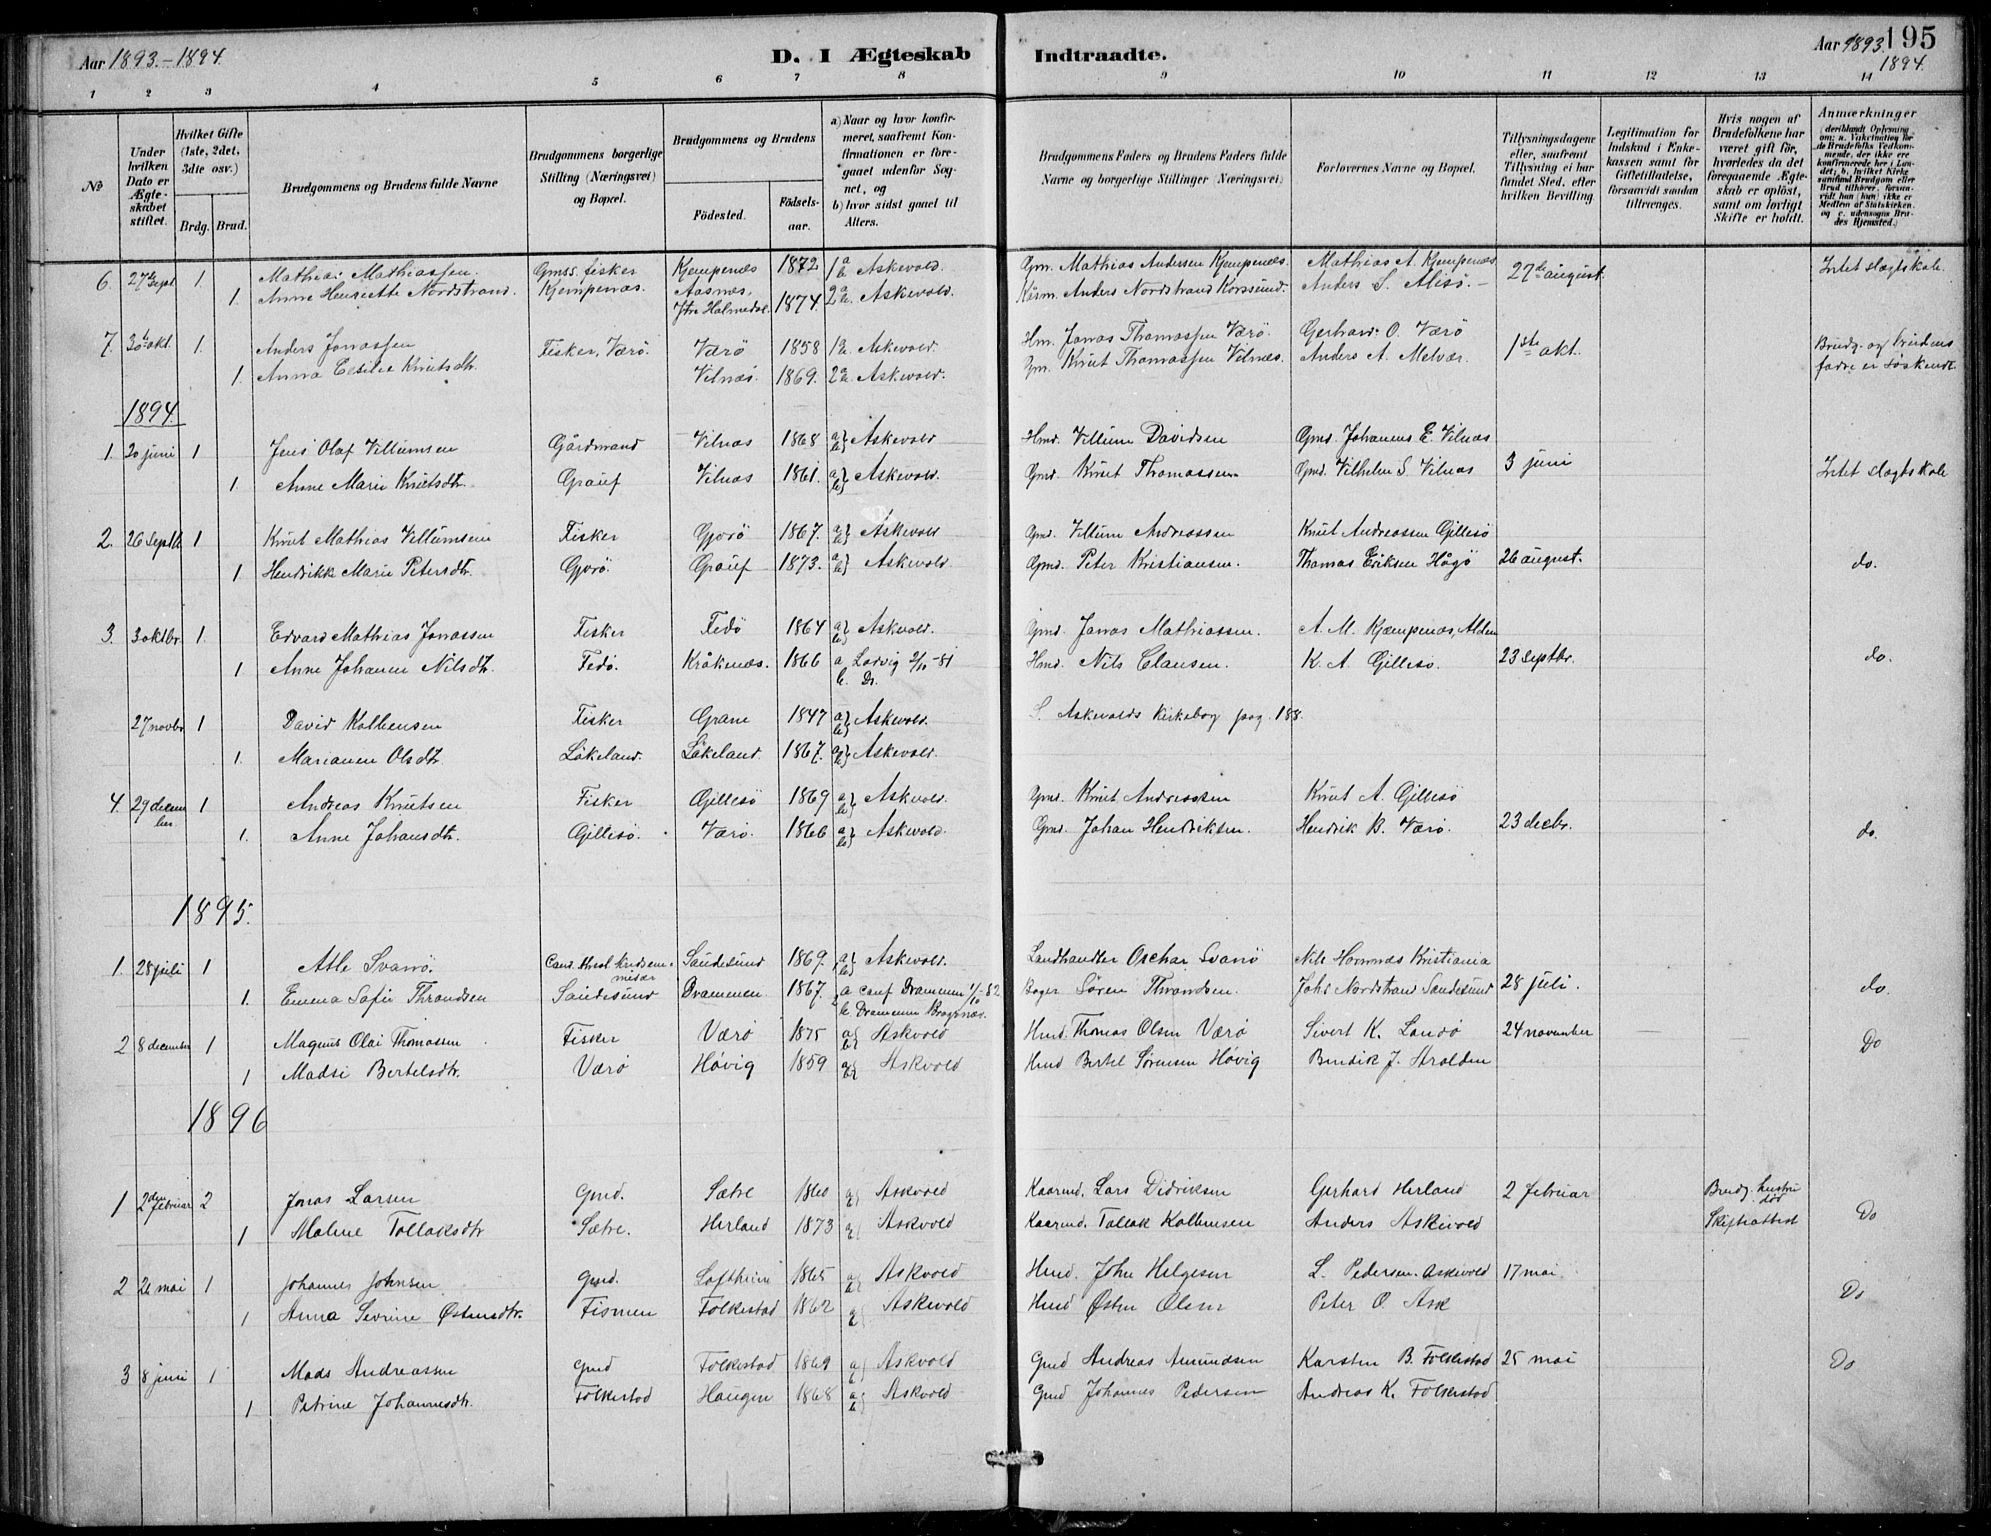 Aar 1893.-1894.
D. I Ægteskab Indtraadte.
Aar 1893. 195
1894.
1 2 3 4 5 6 7 8 9 10 11 12 13 14
No
Under hvilken Dato er Ægteskabet stiftet.
Hvilket Gifte (1ste, 2det, 3die osv.)
Brdg. Brud.
Brudgommens og Brudens fulde Navne
Brudgommens borgerlige Stilling (Næringsvei) og Bopæl.
Brudgommens og Brudens
Fødested.
Fødselsaar.
a) Naar og hvor konfirmeret, saafremt Konfirmationen er foregaaet udenfor Sognet, og
b) hvor sidst gaaet til Alters.
Brudgommens Faders og Brudens Faders fulde Navne og borgerlige Stillinger (Næringsvei)
Forlovernes Navne og Bopæl.
Tillysningsdagene eller, saafremt Tillysning ei har fundet Sted, efter hvilken Bevilling.
Legitimation for Indskud i Enkekassen samt for Giftetilladelse, forsaavidt saadan tiltrænges.
Hvis nogen af Brudefolkene har været gift før, hvorledes da det foregaaende Ægteskab er opløst, samt om lovligt Skifte er holdt.
Anmærkninger
(deriblandt Oplysning om: a. Vakcination for de Brudefolks Vedkommende, der ikke ere konfirmerede her i Landet; b. hvilket Kirkesamfund Brudgom eller Brud tilhører, forsaavidt han (hun) ikke er Medlem af Statskirken, og c. udensogns Brudes Hjemsted.)
6. 27de Sept. 1 Mathias Mathiassen. Gmss. fisker Kjempenæs 1872 1 a b Askevold. Gm. Mathias Andersen Kjempenæs. Mathias A. Kjempenæs 27de august. Intet slægtskab.
1. Anne Henriette Nordstrand. Kjempenæs. Aasnæs, Ytre Holmedal. 1874. 2 a b. Askevold. Anders Nordstrand Korssund. Anders S. Alisø.
7. 30te okt. 1. Anders Jonassen Fisker, Værö. Værö 1858 Askevold. Hm. Jonas Thomassen Værö. Gerhard O. Værö 1ste okt. Brudg. og Brudens
1. Anna Cesilie Knutsdtr. Vilnæs. 1869. Askevold. Gm. Knut Thomassen Vilnæs. Anders A. Melvær. fadre er søskende.
1894.
1. 20 juni 1 Jens Olaf Villumsen Gårdmand Vilnæs 1868 a} b} Askevold Hmd. Villum Davidsen Gmd. Johannes E. Vilnæs
1 Anne Marie Knutsdtr. Grauf Vilnæs 1861. a} b} Askevold. Gmd. Knut Thomassen. Gmd. Vilhelm S. Vilnæs 3 juni Intet slægtskab
2. 26 Septbr 1 Knut Mathias Villumsen Fisker Gjorö 1867. a} b} Askevold Gmd. Villum Andreassen Knut Andreassen Gillesö
1 Hendrikke Marie Petersdtr. Gjorö. Grauf 1873. a} b} Askevold. Gmd. Peter Kristiansen. Thomas Eriksen Hågö 26 august. do.
3. 3 oktbr. 1. Edvard Mathias Jonassen Fisker Fedö 1864 a} b} Askevold. Gmd. Jonas Mathiassen. A. M. Kjempenæs, Alden
1 Anne Johanne Nilsdtr. Fedö. Kråknæs. 1866 a Lavvig 2/10-81 b. Do. Hmd. Nils Clausen. K. A. Gillesö. 23 Septbr. do.
27 novbr 1 David Kolbensen Fisker Grane 1847 a} b} Askevold. S. Askevolds Kirkebog pag. 188.
1. Marianne Olsdtr. Låkeland. Låkeland. 1867. a} b} Askevold.
4. 29 decem ber. 1 Andreas Knutsen Fisker Gillesö 1869 a} b} Askevold. Gmd. Knut Andreassen Knut A. Gillesö
1. Anne Johansdtr. Gillesö. Værö. 1866 a} b} Askevold. Gmd. Johan Hendriksen. Hendrik B. Værö. 23 decbr. do.
1895.
1. 28 juli 1 Atle Svanö. Cand. theol. Sandesund 1869. a} b} Askevold. Landhandler Oschar Svanö Nils Kristiania
1. Emma Sofie Throndsen Sandesund Drammen. 1867. a conf Drammen 1/10-82 b. Drammen Bragernæs. Bager Sören Throndsen. Johs Nordstrand Sandesund 28 juli. do.
2 8 december 1 Magnus Olai Thomassen Fisker Værö 1875 a} b} Askvold Hmd. Thomas Olsen Værö Sivert K. Landö 24 november Do
1 Madsi Bertelsdtr. Værö Høvig 1859 Askvold Hmd Bertel Sørensen Høvig Bendik J. Aralden
1896
1 2den februar 2 Jonas Larsen Gmd. Sætre 1860 Askvold Kaarmd. Lars Didriksen Gerhard Herland 2 februar Brudg. hustru død
1 Malene Tollaksdtr Sætre. Herland 1873 Askvold Kaarmd. Tollak Kolbensen Anders Askevold Skifteattest Do
2 26 mai 1 Johannes Johnsen Gmd. Loftheim 1865 Askvold Hmd. John Helgesen L. Pedersen. Askevold 17 mai.
1 Anna Sevrine Østensdtr. Fismen Folkestad 1862 Askevold Hmd Østen Olsen Peter O. Ask Do
3 8 juni 1 Mads Andreassen Gmd Folkestad 1869 a} b} Askvold Gmd Andreas Amundsen Karsten B. Folkestad 25 mai Do
1 Petrine Johannesdtr. Folkestad Haugen 1868 a} b} Askvold Gmd Johannes Pedersen Andreas K. Folkestad